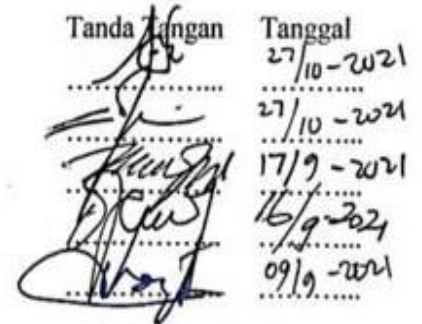 Tanda Tangan Tanggal
27/10-2021
27/10-2021
17/9-2021
16/9-2021
09/9-2021